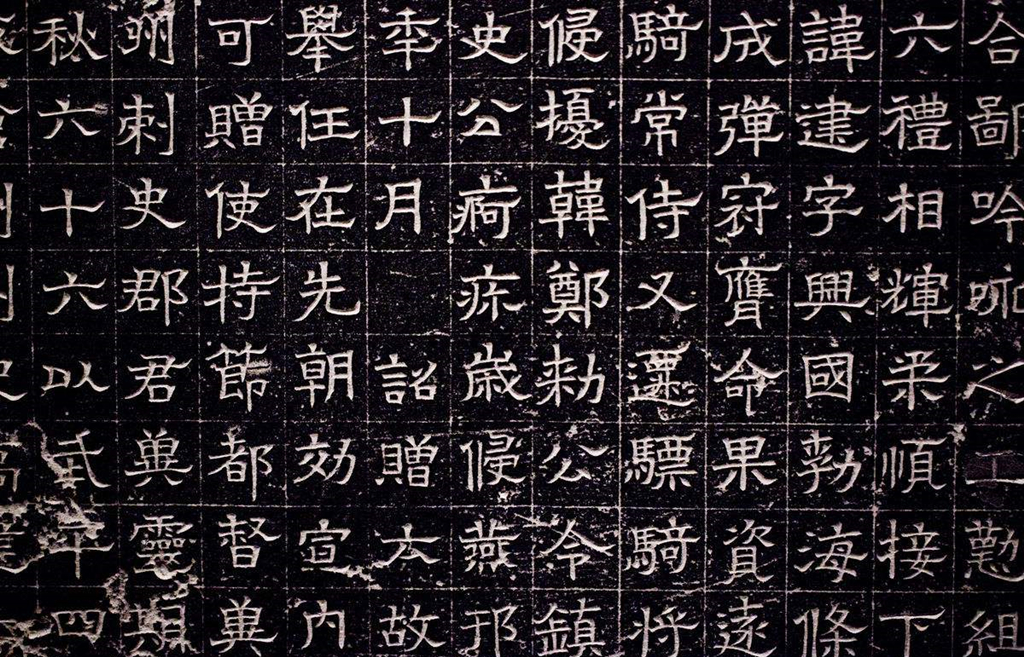 合鄙吟咏之工懃組
六禮相輝柔順接下
諱建字興國勃海條
成彈冠膺命果資遠
騎常侍又遷驃騎將
侵擾韓鄭敕公令鎮
史公痾疾歲侵燕邦
年十月詔贈大故
舉任在先朝効宣内
可贈使持節都督冀
州刺史郡君冀靈
秋六十六以武平四